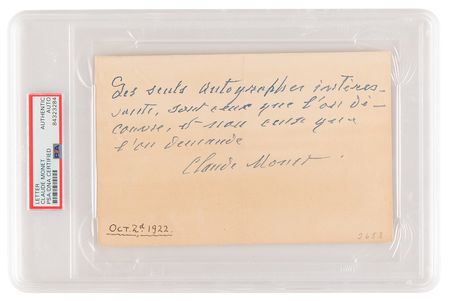 Les seuls autographes intéres-
sants, sont ceux que l'on dé-
couvre, et non ceux que
l'on demande
Claude Monet.
Oct. 2d 1922.
2653
LETTER
CLAUDE MONET
PSA/DNA CERTIFIED
AUTHENTIC
AUTO
84323284
PSA